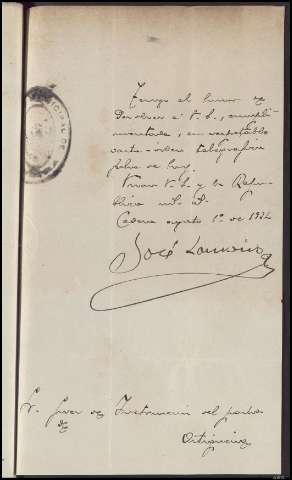 Tengo el honor de
devolver a V. S., cumpli-
mentada, su respetable
carta-orden telegráfica
fecha de hoy.
Viva V. S. y la Repú-
blica m. a.
Cedeira agosto 1º de 1874
José Loureiro
Sr. Juez de Instrucción del partido
de
Ortigueira